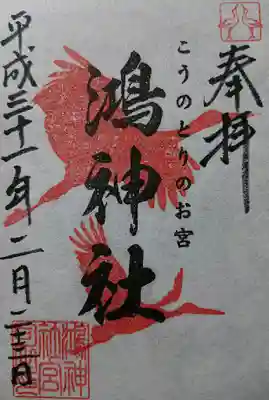 奉拝
こうのとりのお宮
鴻神社
平成三十一年二月二十三日